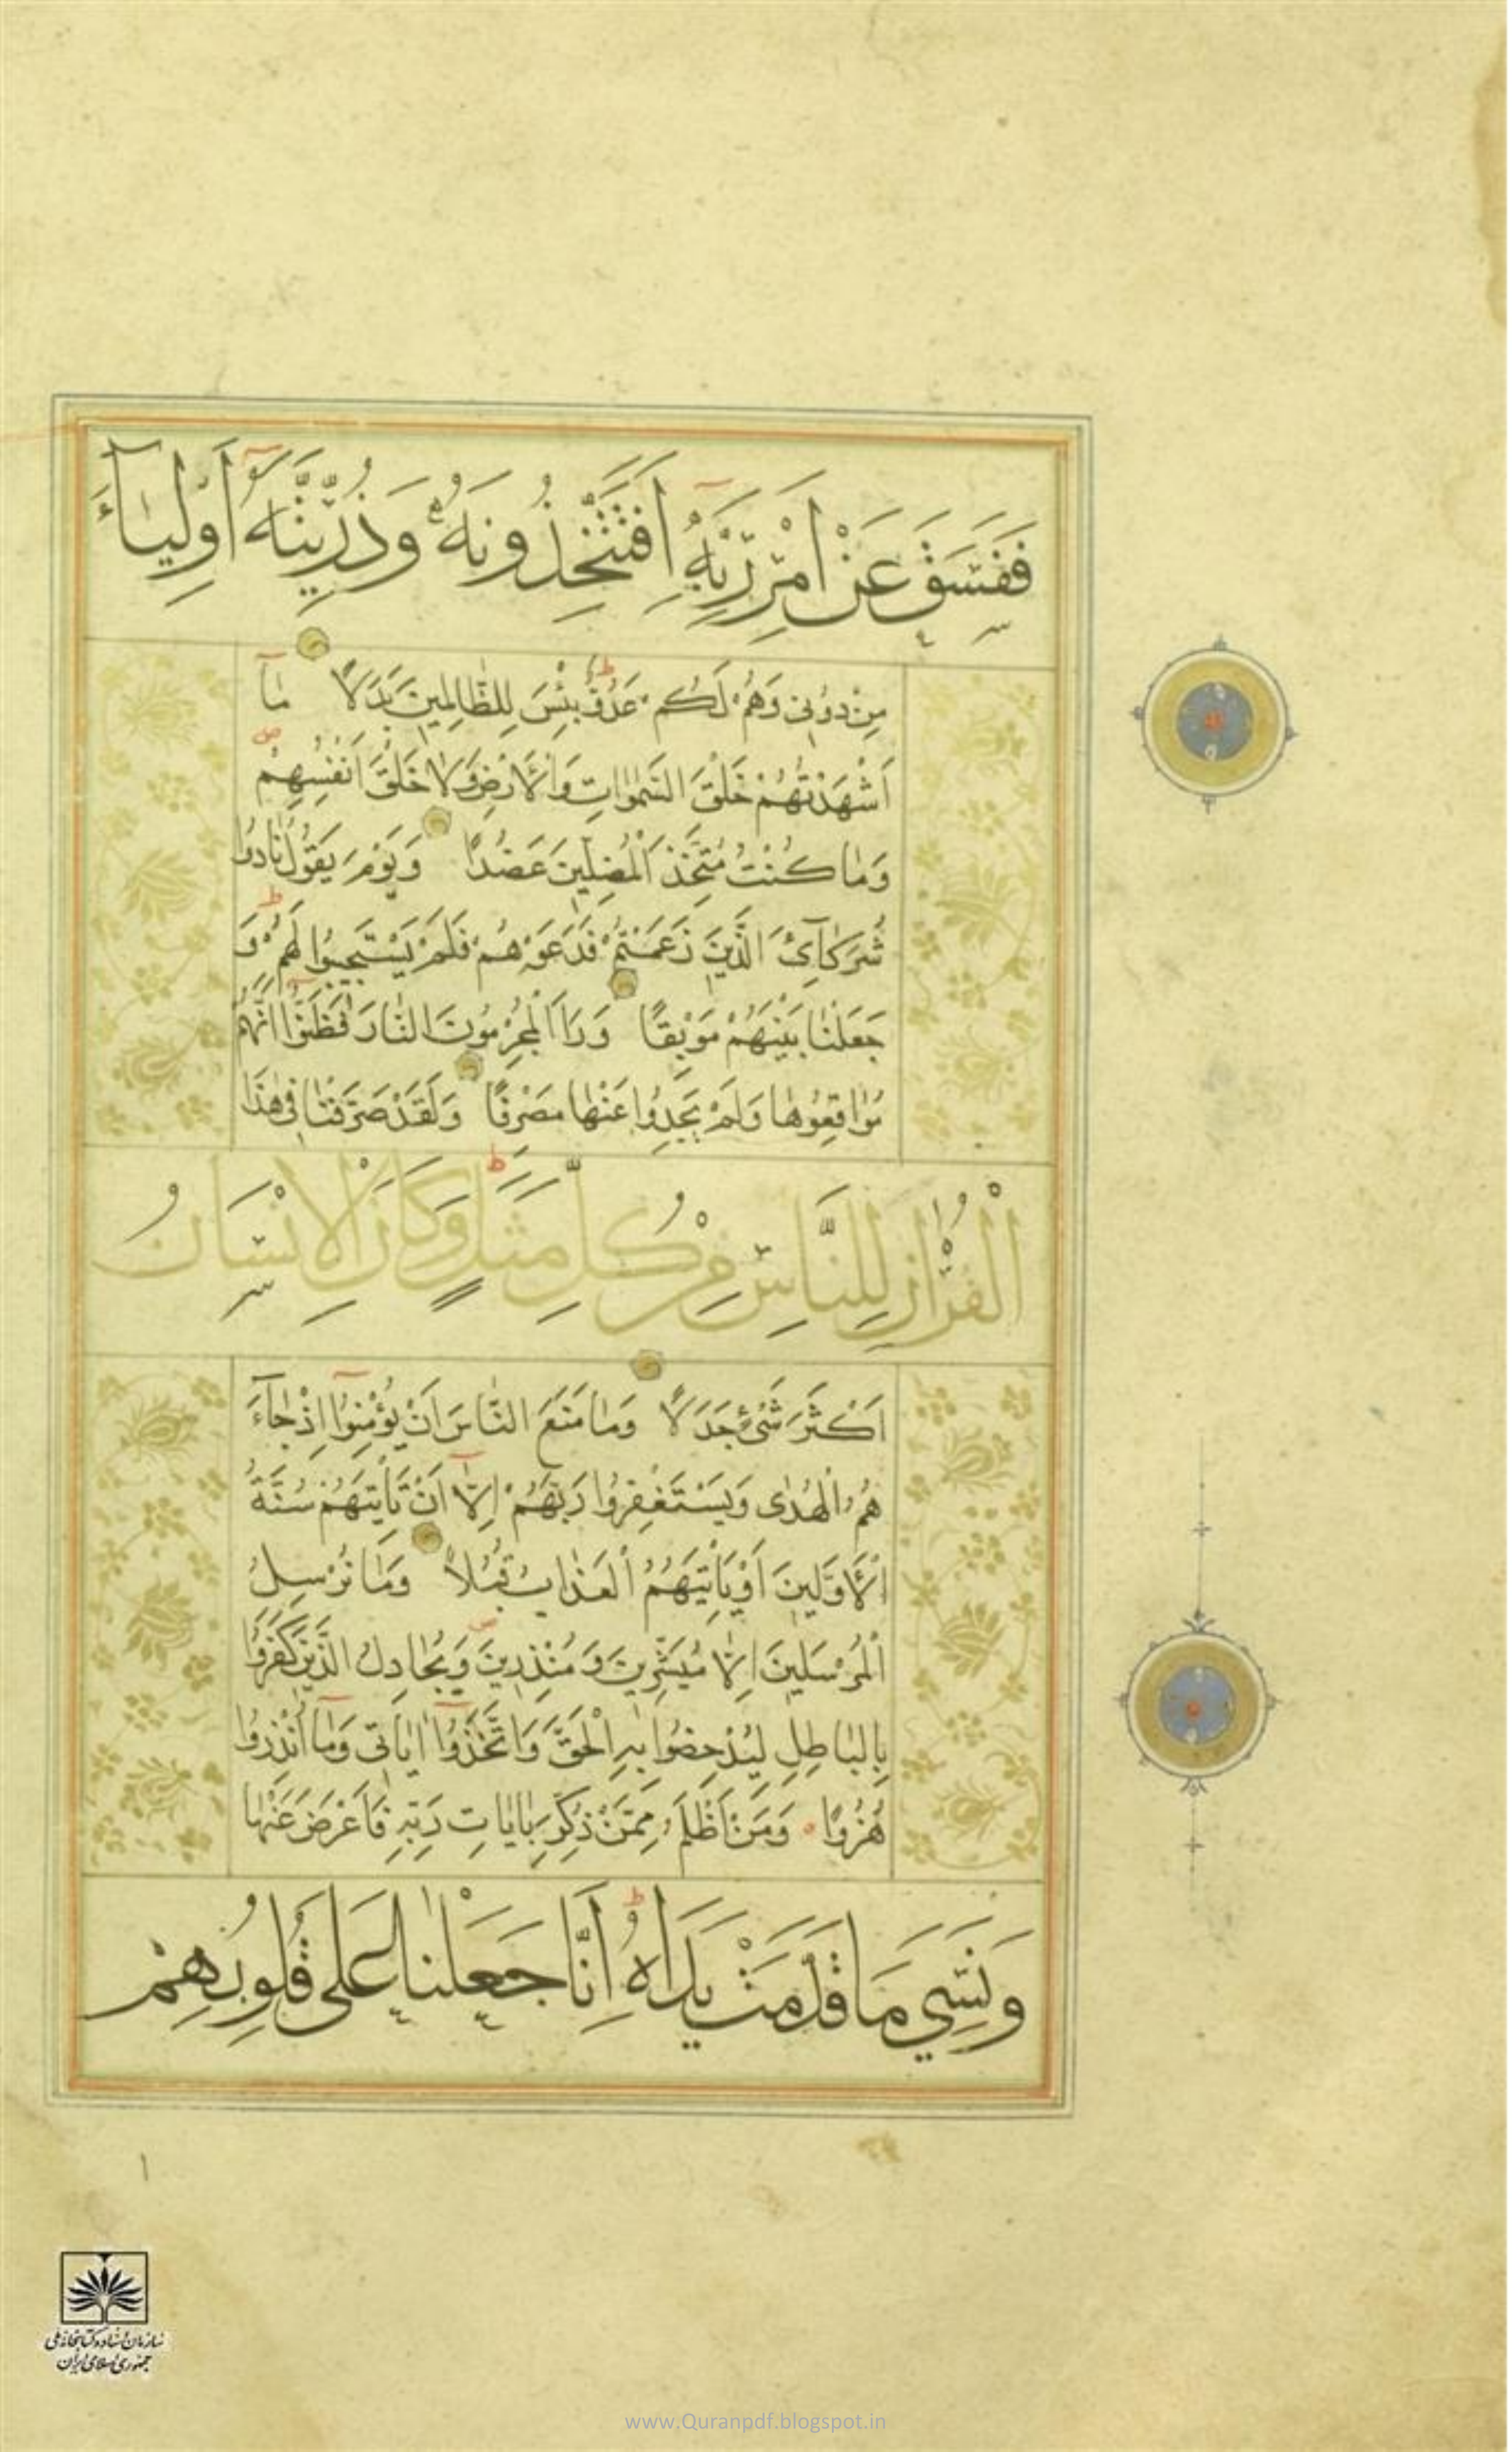 فَفَسَقَ عَنْ اَمْرِ رَبِّهِٓ اَفَتَتَّخِذُونَهُ وَذُرِّيَّتَهُٓ اَوْلِيَآءَ
مِنْ دُونِي وَهُمْ لَكُمْ عَدُوٌّ ط بِئْسَ لِلظَّالِمِينَ بَدَلًا مَآ
اَشْهَدْتُهُمْ خَلْقَ السَّمٰوَاتِ وَالْاَرْضِ وَلَا خَلْقَ اَنْفُسِهِمْ ص
وَمَا كُنْتُ مُتَّخِذَ الْمُضِلِّينَ عَضُدًا وَيَوْمَ يَقُولُ نَادُوا
شُرَكَآئِيَ الَّذِينَ زَعَمْتُمْ فَدَعَوْهُمْ فَلَمْ يَسْتَجِيبُوا لَهُمْ ط وَ
جَعَلْنَا بَيْنَهُمْ مَوْبِقًا وَرَاَ الْمُجْرِمُونَ النَّارَ فَظَنُّوٓا اَنَّهُمْ
مُوَاقِعُوهَا وَلَمْ يَجِدُوا عَنْهَا مَصْرِفًا وَلَقَدْ صَرَّفْنَا فِي هٰذَا
الْقُرْاٰنِ لِلنَّاسِ مِنْ كُلِّ مَثَلٍ ط وَكَانَ الْاِنْسَانُ
اَكْثَرَ شَيْءٍ جَدَلًا وَمَا مَنَعَ النَّاسَ اَنْ يُؤْمِنُوٓا اِذْ جَآءَ
هُمُ الْهُدٰى وَيَسْتَغْفِرُوا رَبَّهُمْ اِلَّآ اَنْ تَأْتِيَهُمْ سُنَّةُ
الْاَوَّلِينَ اَوْ يَأْتِيَهُمُ الْعَذَابُ قُبُلًا وَمَا نُرْسِلُ
الْمُرْسَلِينَ اِلَّا مُبَشِّرِينَ وَمُنْذِرِينَ ص وَيُجَادِلُ الَّذِينَ كَفَرُوا
بِالْبَاطِلِ لِيُدْحِضُوا بِهِ الْحَقَّ وَاتَّخَذُوٓا اٰيَاتِي وَمَآ اُنْذِرُوا
هُزُوًا وَمَنْ اَظْلَمُ مِمَّنْ ذُكِّرَ بِاٰيَاتِ رَبِّهِ فَاَعْرَضَ عَنْهَا
وَنَسِيَ مَا قَدَّمَتْ يَدَاهُ ط اِنَّا جَعَلْنَا عَلٰى قُلُوبِهِمْ
١
سازمان اسناد و کتابخانه ملی
جمهوری اسلامی ایران
www.Quranpdf.blogspot.in